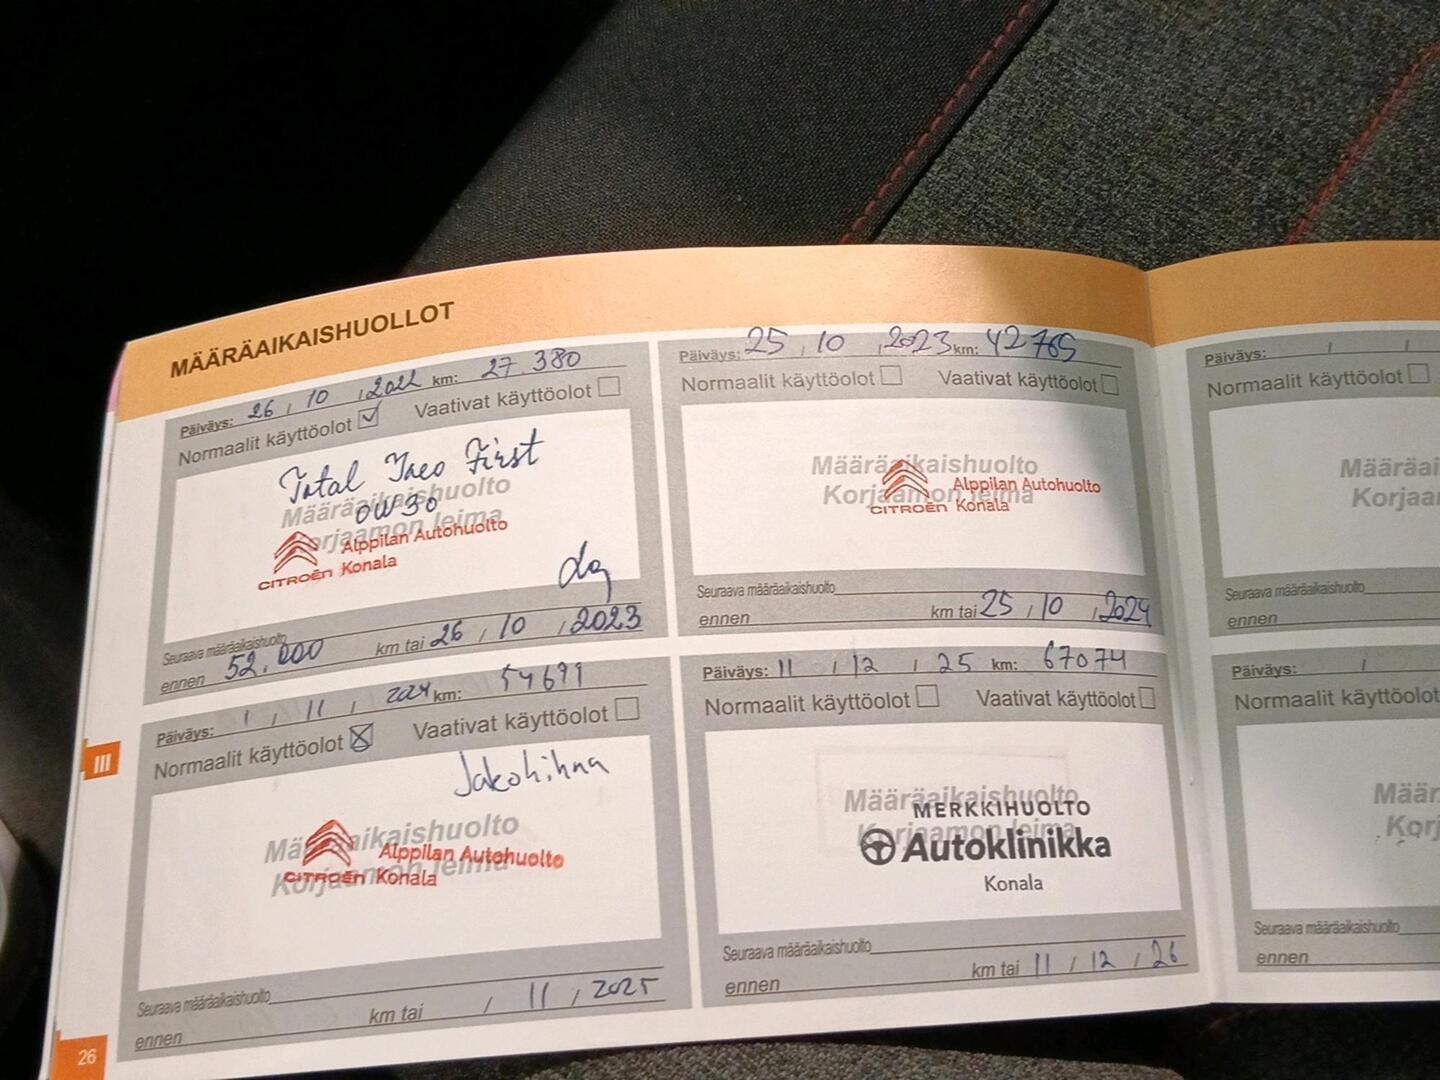 MÄÄRÄAIKAISHUOLLOT
Päiväys: 26 / 10 / 2022 km: 27.380
Normaalit käyttöolot Vaativat käyttöolot
Total Ineo First
0W30
Määräaikaishuolto
Korjaamon leima
CITROËN Alppilan Autohuolto
Konala
Seuraava määräaikaishuolto
ennen 52.000 km tai 26 / 10 / 2023
Päiväys: 25 / 10 / 2023 km: 42765
Normaalit käyttöolot Vaativat käyttöolot
Määräaikaishuolto
Korjaamon leima
CITROËN Alppilan Autohuolto
Konala
Seuraava määräaikaishuolto
ennen km tai 25 / 10 / 2024
Päiväys: 1 / 11 / 2024 km: 54691
Normaalit käyttöolot Vaativat käyttöolot
Jakohihna
Määräaikaishuolto
Korjaamon leima
CITROËN Alppilan Autohuolto
Konala
Seuraava määräaikaishuolto
ennen km tai / 11 / 2025
Päiväys: 11 / 12 / 25 km: 67074
Normaalit käyttöolot Vaativat käyttöolot
Määräaikaishuolto
Korjaamon leima
MERKKIHUOLTO
Autoklinikka
Konala
Seuraava määräaikaishuolto
ennen km tai 11 / 12 / 26
III
26
Päiväys: / /
Normaalit käyttöolot
Määräai
Korjaa
Seuraava määräaikaishuolto
ennen
Päiväys: /
Normaalit käyttöolot
Määr
Korj
Seuraava määräaikaishuolto
ennen